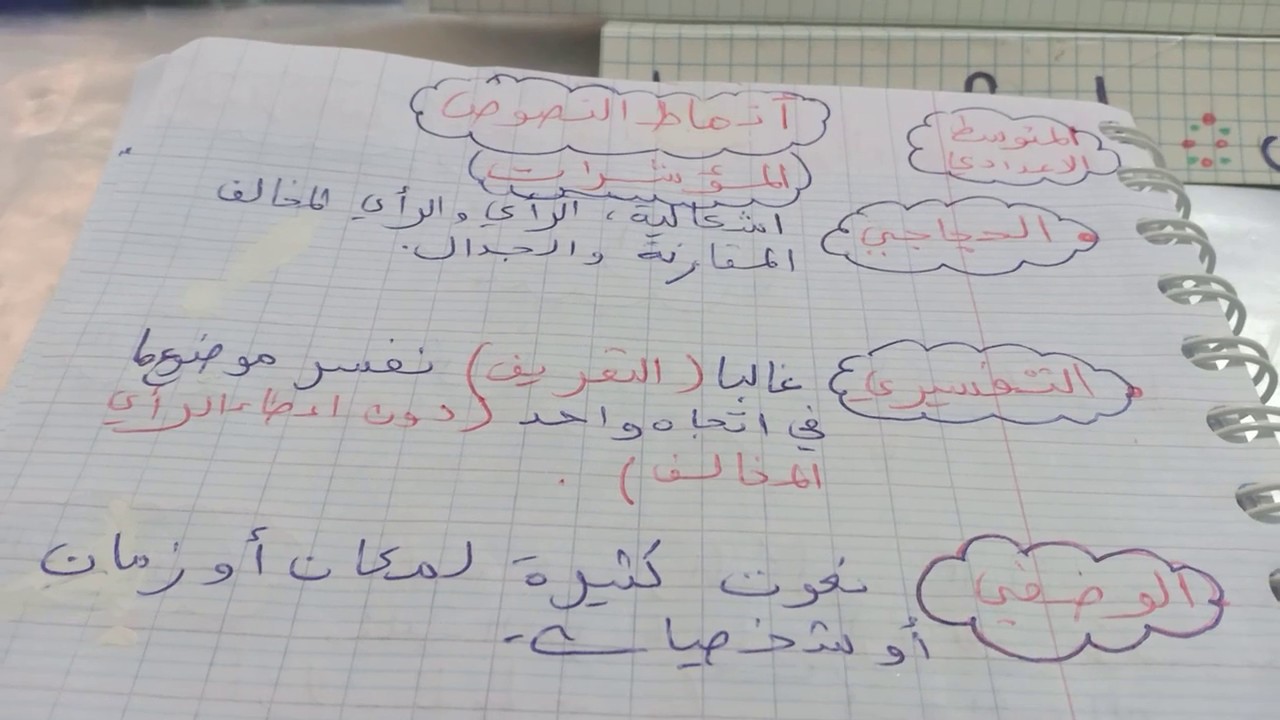 أنماط النصوص
المتوسط
الاعدادي
المؤشرات
الحجاجي
اشكالية، الرأي والرأي المخالف
المقارنة والجدال.
التفسيري
غالبا (التعريف) نفسر موضوعا
في اتجاه واحد (دون اعطاء الرأي
المخالف) .
الوصفي
نعوت كثيرة لمكان أو زمان
أو شخصيات.